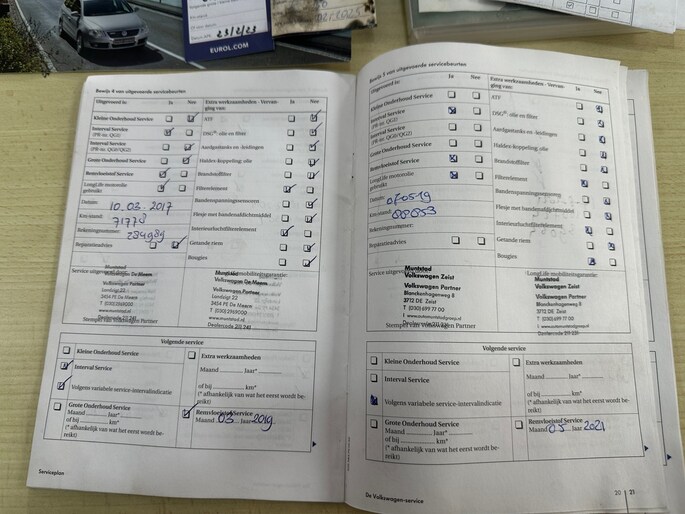 23/2/23
EUROL.COM
Bewijs 4 van uitgevoerde servicebeurten
Uitgevoerd is: Ja Nee
Kleine Onderhoud Service
Interval Service
(PR-nr. QG1)
Interval Service
(PR-nr. QG0/QG2)
Grote Onderhoud Service
Remvloeistof Service
LongLife motorolie
gebruikt
Datum: 10.03.2017
Km-stand: 71778
Rekeningnummer: 284989
Reparatieadvies
Extra werkzaamheden - Vervan-
ging van: Ja Nee
ATF
DSG®-olie en filter
Aardgastanks en -leidingen
Haldex-koppeling: olie
Brandstoffilter
Filterelement
Bandenspanningssensoren
Flesje met bandenafdichtmiddel
Interieurluchtfilterelement
Getande riem
Bougies
Service uitgevoerd door:
Muntstad
Volkswagen De Meern
Volkswagen Partner
Landzigt 22
3454 PE De Meern
T (030)2968000
www.muntstad.nl
Dealercode 211 241
Stempel van Volkswagen Partner
LongLife mobiliteitsgarantie:
Muntstad
Volkswagen De Meern
Volkswagen Partner
Landzigt 22
3454 PE De Meern
T (030)2968000
www.muntstad.nl
Dealercode 211 241
Volgende service
Kleine Onderhoud Service
Interval Service
Volgens variabele service-intervalindicatie
Extra werkzaamheden
Maand Jaar*
of bij km*
(* afhankelijk van wat het eerst wordt be-
reikt)
Grote Onderhoud Service
Maand Jaar*
of bij km*
(* afhankelijk van wat het eerst wordt be-
reikt)
Remvloeistof Service
Maand 03 Jaar 2019
Serviceplan
Bewijs 5 van uitgevoerde servicebeurten
Uitgevoerd is: Ja Nee
Kleine Onderhoud Service
Interval Service
(PR-nr. QG1)
Interval Service
(PR-nr. QG0/QG2)
Grote Onderhoud Service
Remvloeistof Service
LongLife motorolie
gebruikt
Datum: 070519
Km-stand: 88853
Rekeningnummer:
Reparatieadvies
Extra werkzaamheden - Vervan-
ging van: Ja Nee
ATF
DSG®-olie en filter
Aardgastanks en -leidingen
Haldex-koppeling: olie
Brandstoffilter
Filterelement
Bandenspanningssensoren
Flesje met bandenafdichtmiddel
Interieurluchtfilterelement
Getande riem
Bougies
Service uitgevoerd door:
Muntstad
Volkswagen Zeist
Volkswagen Partner
Blanckenhagenweg 8
3712 DE Zeist
T (030) 699 77 00
Dealercode 211 221
Stempel van Volkswagen Partner
LongLife mobiliteitsgarantie:
Muntstad
Volkswagen Zeist
Volkswagen Partner
Blanckenhagenweg 8
3712 DE Zeist
T (030) 699 77 00
Dealercode 211 221
Volgende service
Kleine Onderhoud Service
Interval Service
Volgens variabele service-intervalindicatie
Extra werkzaamheden
Maand Jaar*
of bij km*
(* afhankelijk van wat het eerst wordt be-
reikt)
Grote Onderhoud Service
Maand Jaar*
of bij km*
(* afhankelijk van wat het eerst wordt be-
reikt)
Remvloeistof Service
Maand 05 Jaar 2021
De Volkswagen-service
20 21